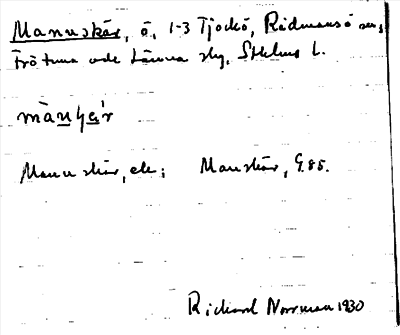 Manuskär, ö, 1-3 Tjockö, Rådmansö sn,
Frötuna och Länna slg, Sthlms l.
mànuʂæ̀r
Manuskär, ek; Manskär, G.85.
Richard Norrman 1930